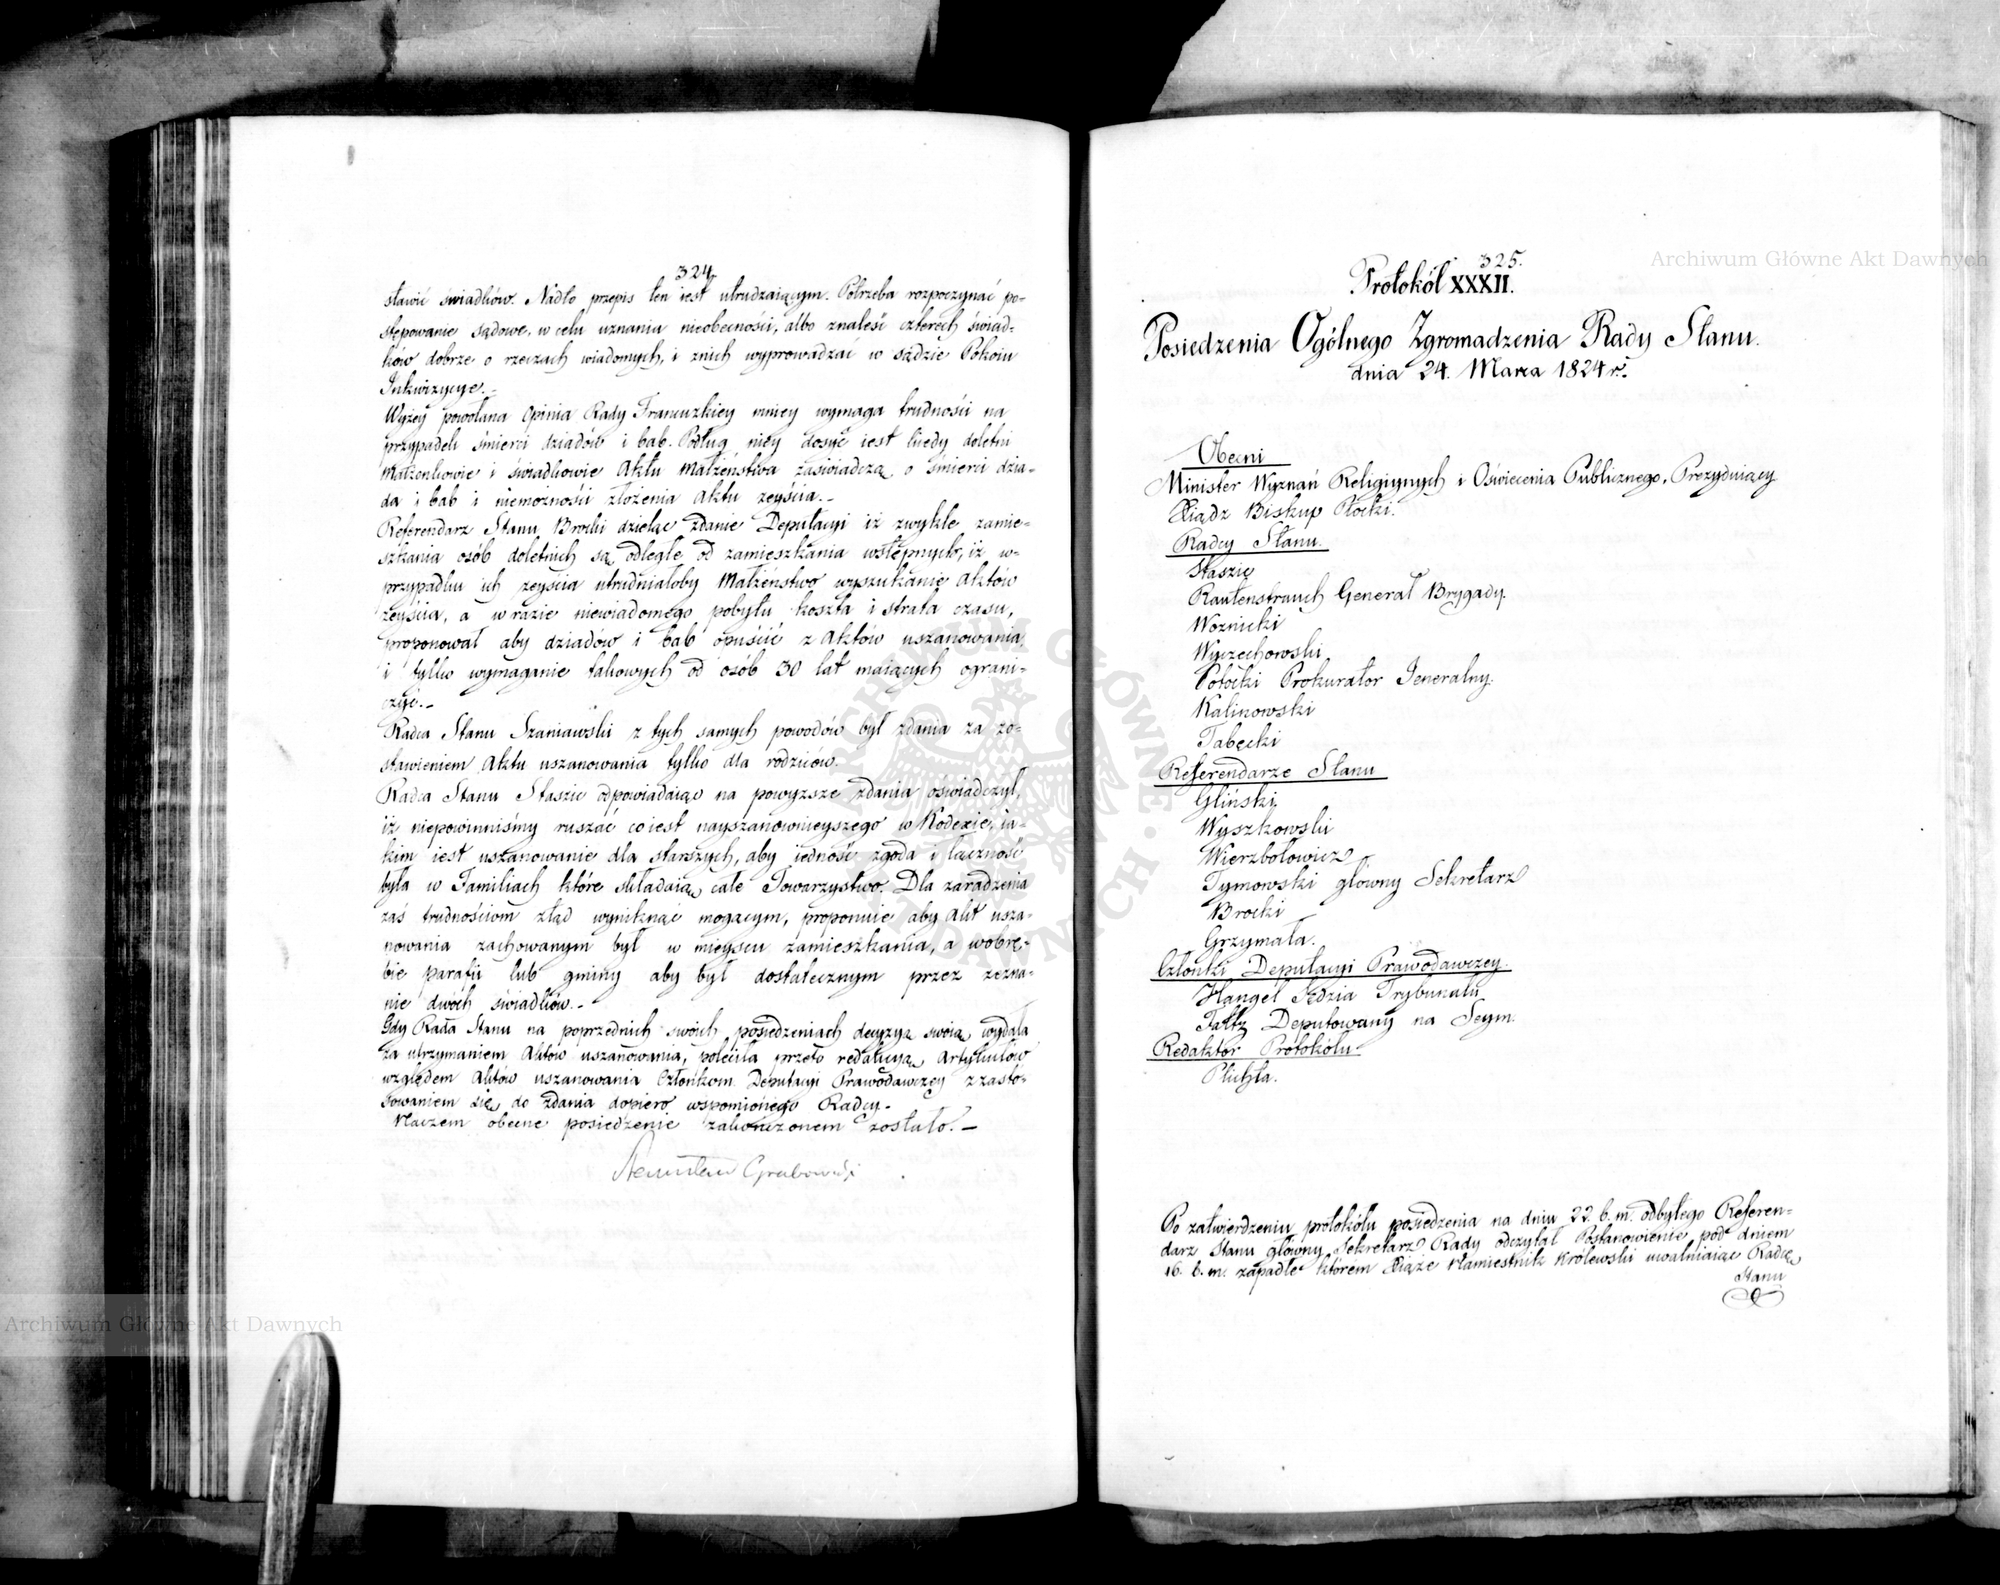 324
stawić świadków. Nadto przepis ten iest utrudzaiącym. Potrzeba rozpoczynać po-
stępowanie sądowe, w celu uznania nieobecności, albo znaleść czterech świad-
ków dobrze o rzeczach wiadomych, i znich wyprowadzać w sądzie Pokoiu
Inkwizycye.-
Wyżey powołana Opinia Rady Francuzkiey mniey wymaga trudności na
przypadek śmierci dziadów i bab. Podług niey dosyć iest kiedy doletni
Małżonkowie i świadkowie Aktu Małżeństwa zaświadczą o śmierci dzia-
da i bab i niemożności złożenia Aktu zeyścia.-
Referendarz Stanu Brocki dzieląc zdanie Deputacyi iż zwykłe zamie-
szkania osób doletnich są odległe od zamieszkania wstępnych, iż w-
przypadku ich zeyścia utrudniałoby Małżeństwo wyszukanie Aktów
zeyścia, a w razie niewiadomego pobytu koszta i strata czasu,
proponował aby dziadów i bab opuścić z Aktów uszanowania
i tylko wymaganie takowych od osób 30 lat maiących ograni-
czyć.-
Radca Stanu Szaniawski z tych samych powodów był zdania za zo-
stawieniem Aktu uszanowania tylko dla rodziców.
Radca Stanu Staszic odpowiadaiąc na powyższe zdania oświadczył,
iż niepowinniśmy ruszać co iest nayszanownieyszego w Kodexie, ia-
kim iest uszanowanie dla starszych, aby iedność zgoda i łączność
była w Familiach które składaią całe Towarzystwo. Dla zaradzenia
zaś trudnościom ztąd wyniknąć mogącym, proponuie aby Akt usza-
nowania zachowanym był w mieyscu zamieszkania, a wobrę-
bie parafii lub gminy aby był dostatecznym przez zezna-
nie dwóch świadków.-
Gdy Rada Stanu na poprzednich swoich posiedzeniach decyzyą swoią wydała
za utrzymaniem Aktów uszanowania, poleciła przeto redakcyą Artykułów
względem Aktów uszanowania Członkom Deputacyi Prawodawczey z zasto-
sowaniem się do zdania dopiero wspomnionego Radcy.-
Naczem obecne posiedzenie zakończonem zostało.-
Stanisław Grabowski
325.
Protokół XXXII.
Posiedzenia Ogólnego Zgromadzenia Rady Stanu.
dnia 24. Marca 1824 r.
Obecni
Minister Wyznań Religiynych i Oświecenia Publicznego, Prezyduiący
Xiądz Biskup Płocki.
Radcy Stanu.
Staszic
Rautenstrauch Generał Brygady.
Woznicki
Wyczechowski
Potocki Prokurator Jeneralny.
Kalinowski
Tabęcki
Referendarze Stanu
Gliński
Wyszkowski
Wierzbołowicz
Tymowski główny Sekretarz
Brocki
Grzymała.
Członki Deputacyi Prawodawczey.
Hangel Sędzia Trybunału
Faltz Deputowany na Seym.
Redaktor Protokółu.
Plichta.
Po zatwierdzeniu protokółu posiedzenia na dniu 22. b. m. odbytego Referen-
darz Stanu główny Sekretarz Rady odczytał Postanowienie pod dniem
16. b. m. zapadłe którem Xiąże Namiestnik Królewski uwalniaiąc Radcę
Stanu
Archiwum Główne Akt Dawnych
Archiwum Główne Akt Dawnych
ARCHIWUM GŁÓWNE AKT DAWNYCH